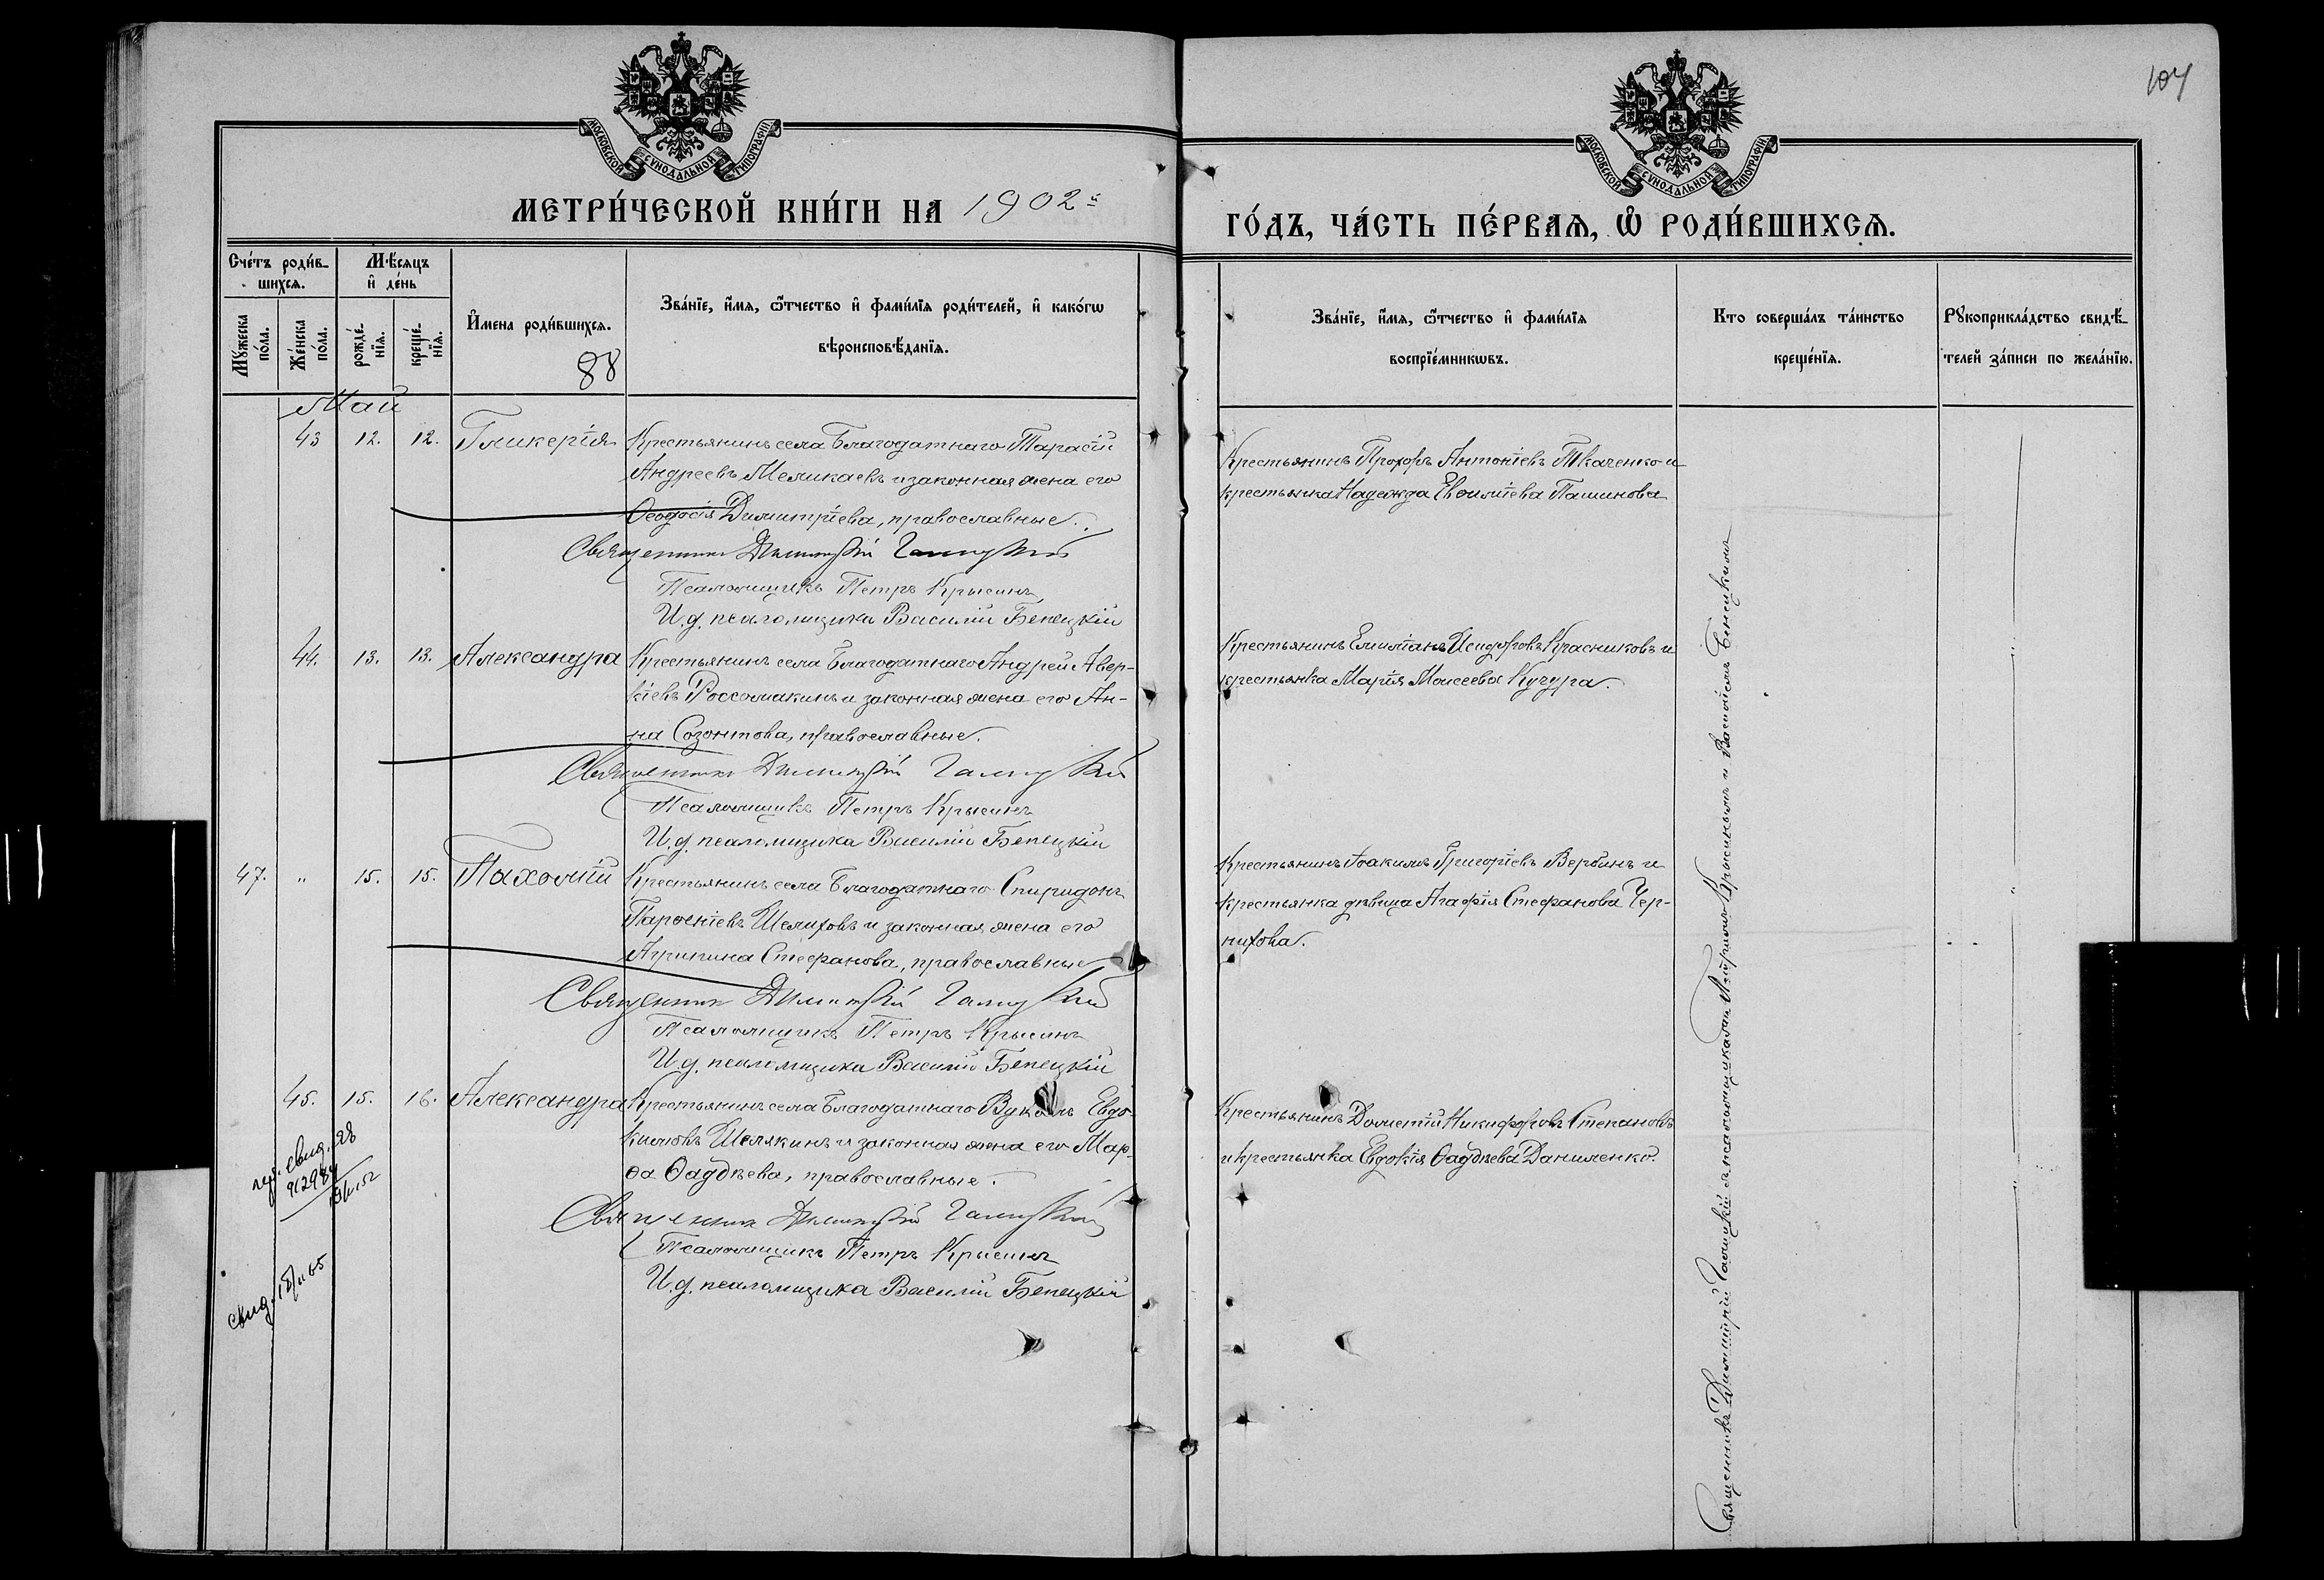 104
МОСКОВСКОЙ СѴНОДАЛЬНОЙ ТИПОГРАФІИ
МОСКОВСКОЙ СѴНОДАЛЬНОЙ ТИПОГРАФІИ
МЕТРИ́ЧЕСКОЙ КНИ́ГИ НА 1902й
ГО́ДЪ, ЧА́СТЬ ПЕ́РВАѦ, Ѡ РОДИ́ВШИХСѦ.
Сче́тъ роди́в-
шихсѧ.
Мѣ́сяцъ
и де́нь
Мꙋ́жеска
по́ла.
Же́нска
по́ла.
рожде́-
нїѧ.
креще́-
нїѧ.
И́мена роди́вшихсѧ.
88
Зва́нїе, и́мѧ, ѻ҆́тчество и фами́лїѧ роди́телей, и како́гѡ
вѣроисповѣ́данїѧ.
Зва́нїе, и́мѧ, ѻ҆́тчество и фами́лїѧ
воспрїе́мникѡвъ.
Кто соверша́лъ та́инство
креще́нїѧ.
Рꙋкоприкла́дство свидѣ́-
телей за́писи по жела́нїю.
Май
43 12. 12. Гликерія
Крестьянинъ села Благодатнаго Тарасій
Андреевъ Меликаевъ и законная жена его
Ѳеодосія Димитріева, православные.
Священникъ Димитрій Галицкій
Псаломщикъ Петръ Крысинъ
И.д. псаломщика Василій Бенецкій
Крестьянинъ Прохоръ Антоніевъ Ткаченко и
крестьянка Надежда Евѳиміева Пашинова
44. 13. 13. Александра
Крестьянинъ села Благодатнаго Андрей Авер-
кіевъ Россомакинъ и законная жена его Ан-
на Созонтова, православные.
Священникъ Димитрій Галицкій
Псаломщикъ Петръ Крысинъ
И.д. псаломщика Василій Бенецкій
Крестьянинъ Емиліанъ Исидоровъ Красниковъ и
крестьянка Марія Моисеева Кучура.
47. " 15. 15. Пахомій
Крестьянинъ села Благодатнаго Спиридонъ
Парѳеніевъ Шелиховъ и законная жена его
Агрипина Стефанова, православные
Священникъ Димитрій Галицкій
Псаломщикъ Петръ Крысинъ
И.д. псаломщика Василій Бенецкій
Крестьянинъ Іоакимъ Григоріевъ Вербинъ и
крестьянка дѣвица Агафія Стефанова Чер-
нихова.
45. 15. 16. Александра
Крестьянинъ села Благодатнаго Вуколъ Евдо-
кимовъ Шелякинъ и законная жена его Мар-
ѳа Ѳаддѣева, православные.
Священникъ Димитрій Галицкій
Псаломщикъ Петръ Крысинъ
И.д. псаломщика Василій Бенецкій
Крестьянинъ Дометій Никифоровъ Степановъ
и крестьянка Евдокія Ѳаддѣева Даниленко.
Священникъ Димитрій Галицкій съ псаломщиками Петромъ Крысинымъ и Василіемъ Бенецкимъ
свид.